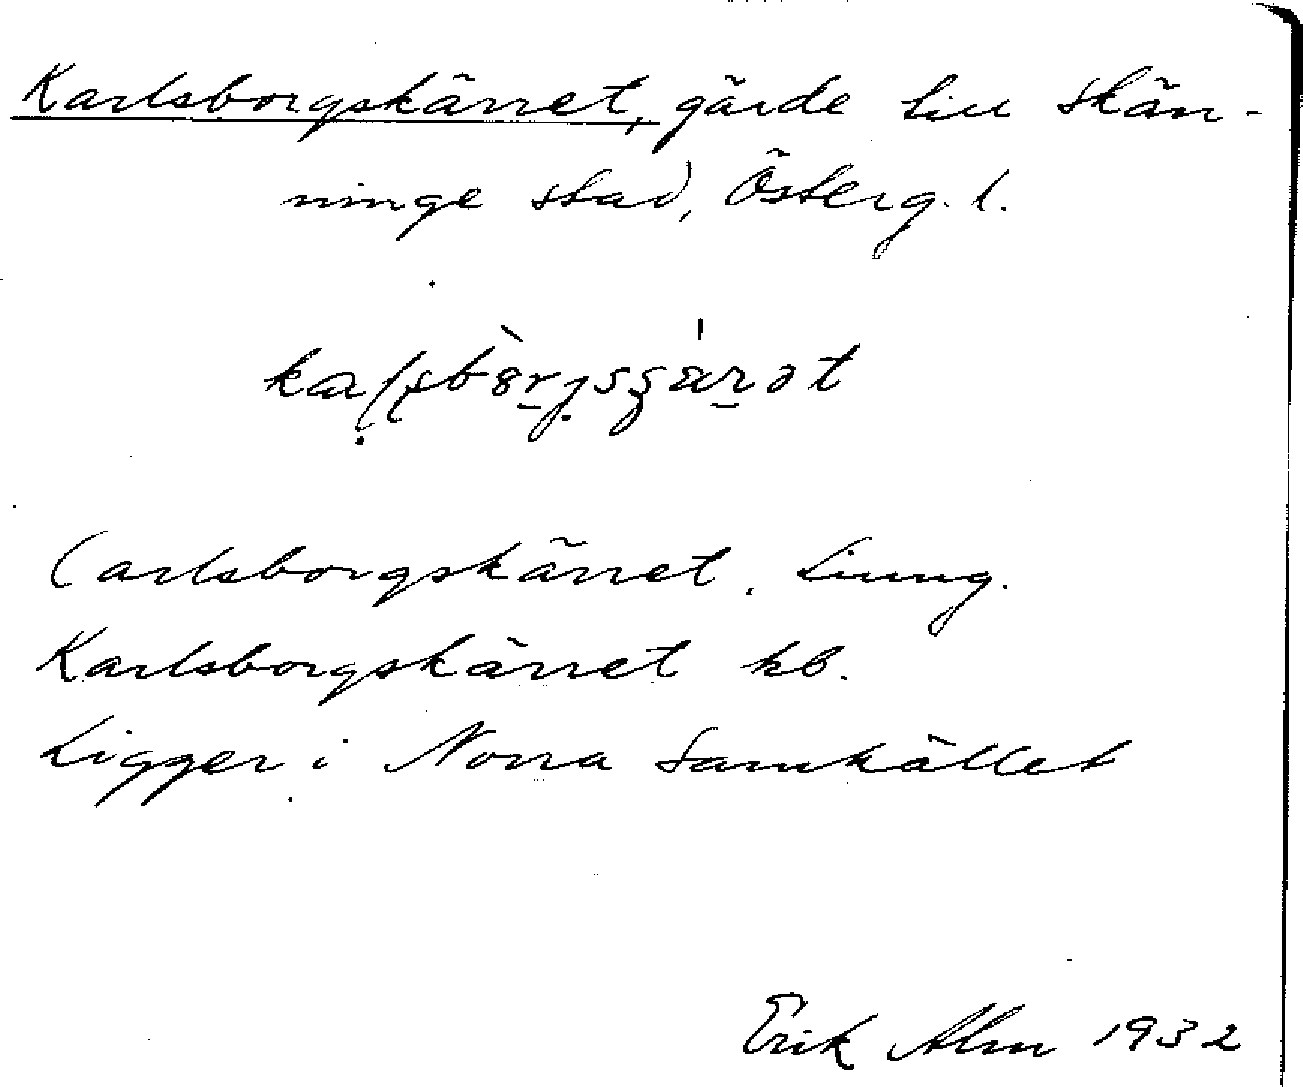 Karlsborgskärret, gärde till Skän-
ninge stad, Österg. l.
Carlsborgskärret. Ljung.
Karlsborgskärret kb.
Ligger i Norra Samhället
Erik Alm 1932